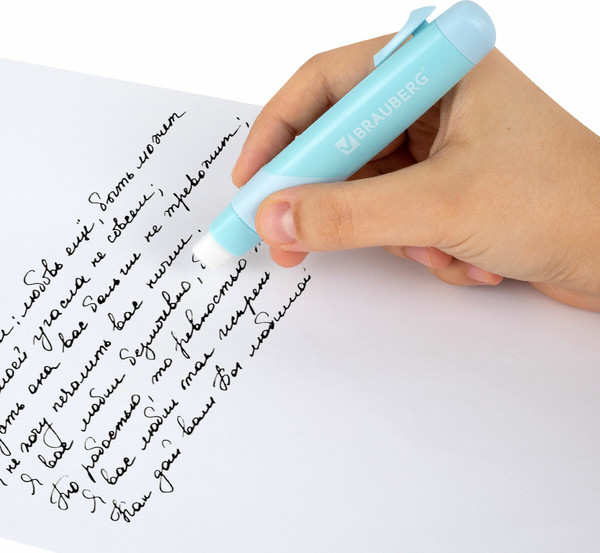 любовь ещё, быть может
моей угасла не совсем;
она вас больше не тревожит;
не хочу печалить вас ничем;
Я вас любил безмолвно,
То робостью то ревностью
Я вас любил так искрен
Как дай вам Бог любимой
BRAUBERG